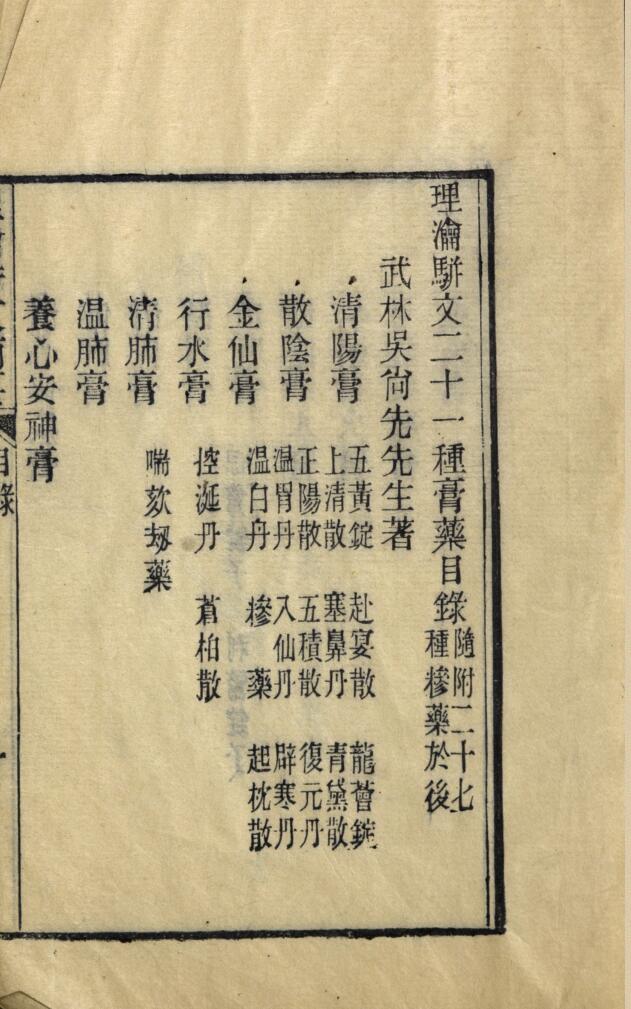 理瀹駢文二十一種膏藥目錄
隨附二十七
種糝藥於後
武林吳尙先先生著
清陽膏
五黃錠 赴宴散 龍薈錠
上清散 塞鼻丹 青黛散
散陰膏
正陽散 五積散 復元丹
温胃丹 入仙丹 辟寒丹
金仙膏
温白丹 糝藥 起枕散
行水膏
控涎丹 蒼柏散
清肺膏
喘欬刼藥
温肺膏
養心安神膏
目錄